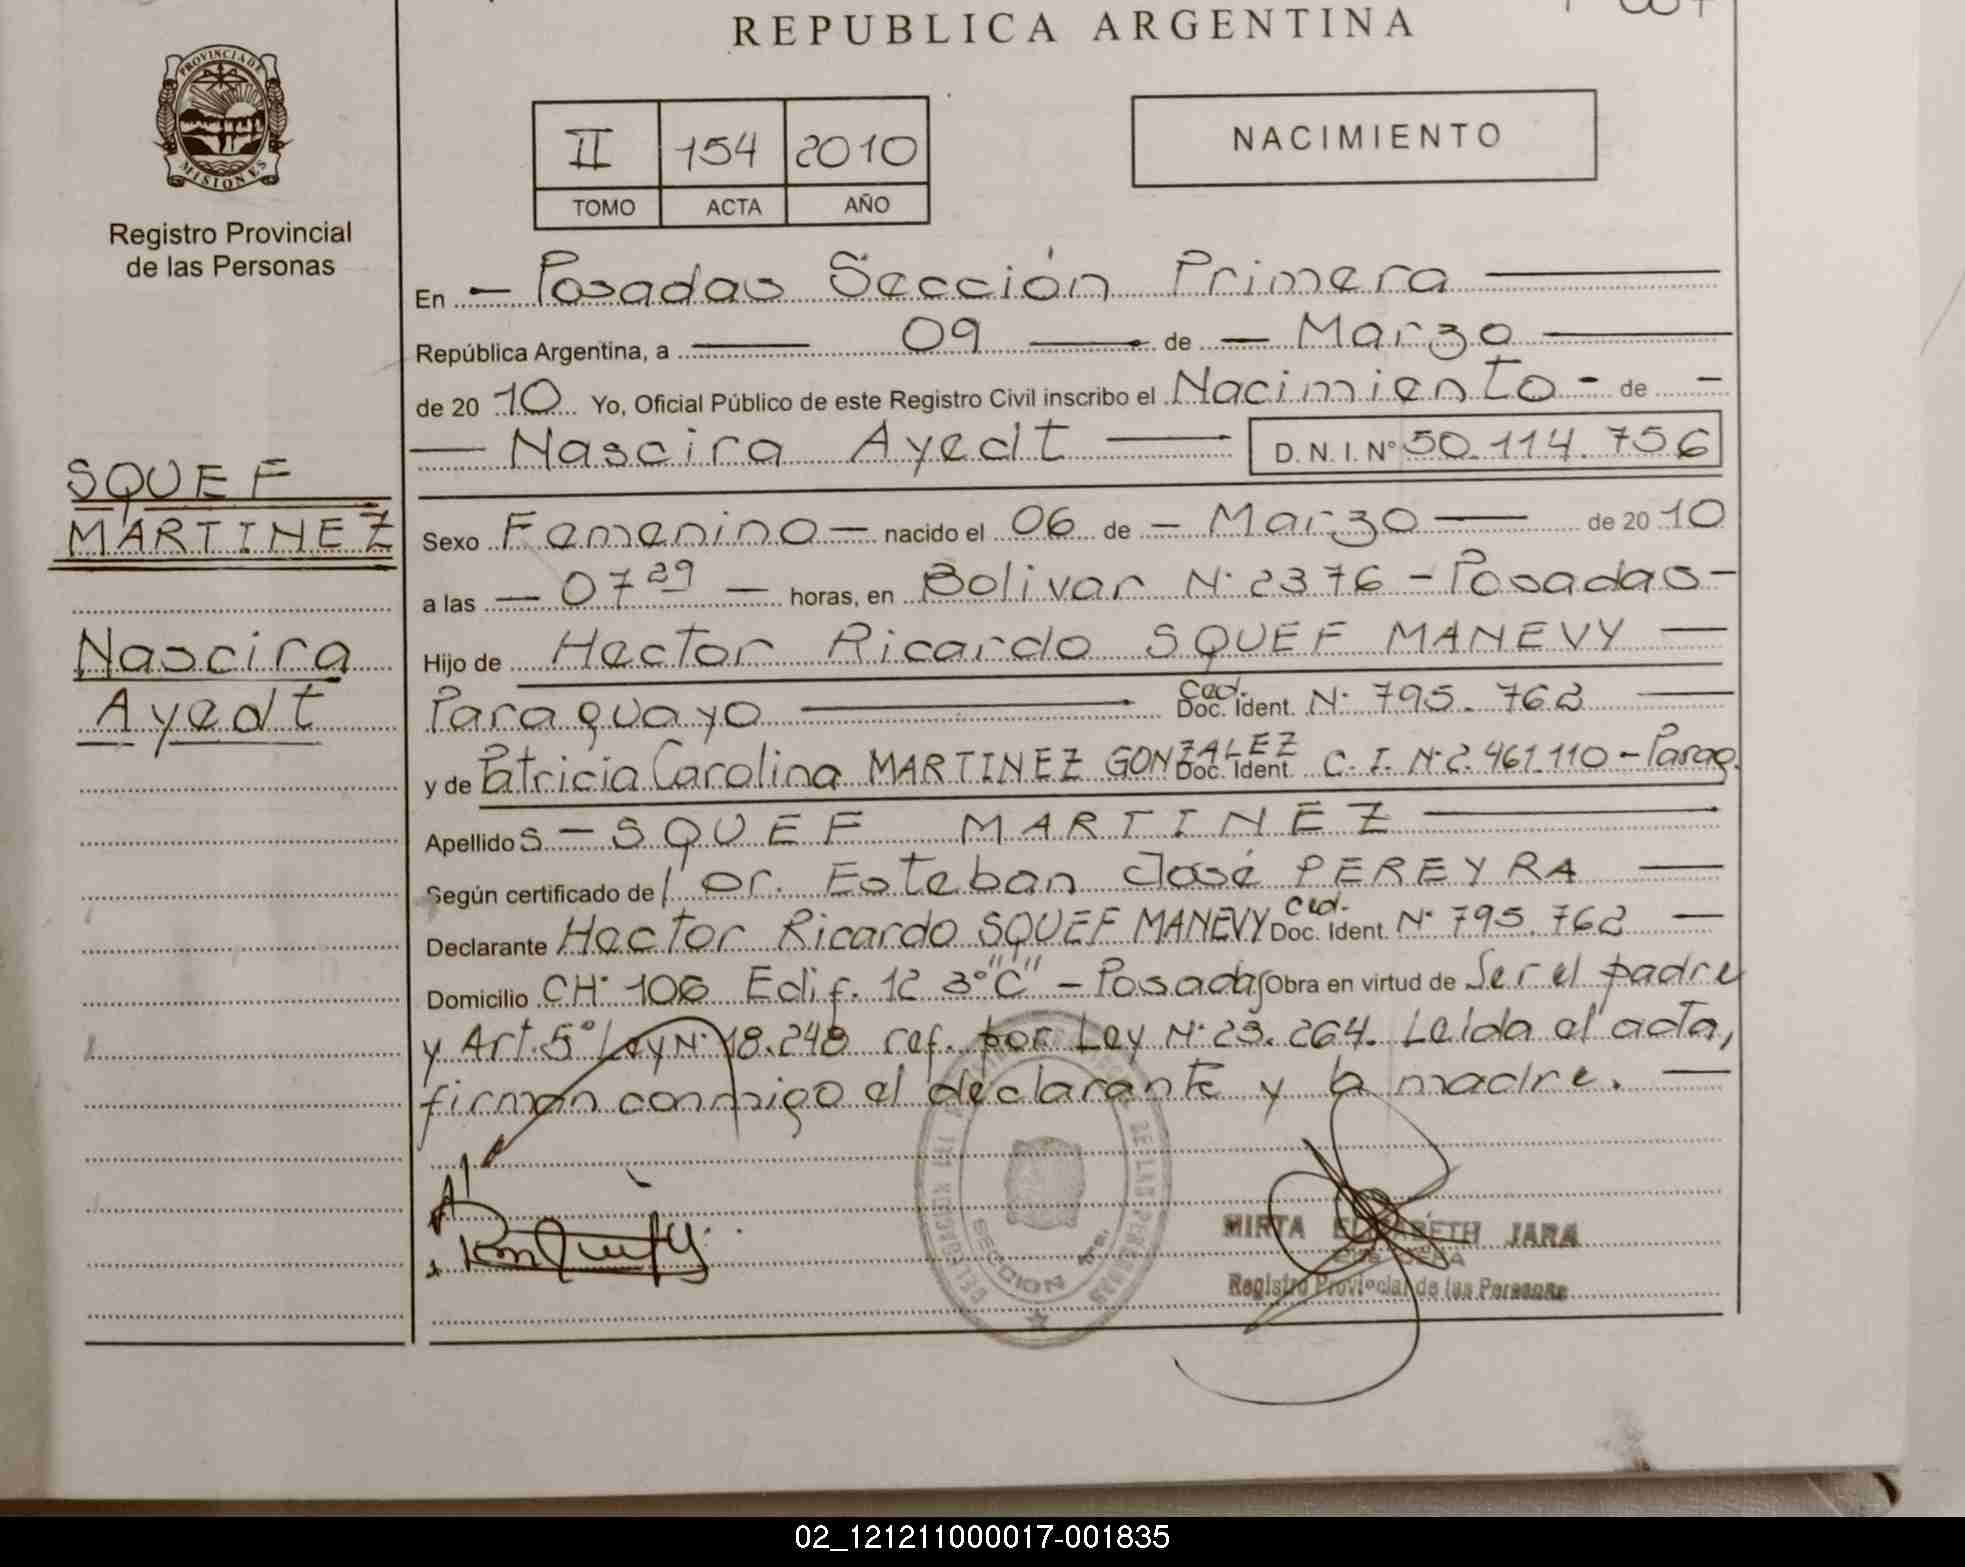 REPUBLICA ARGENTINA
PROVINCIA DE MISIONES
Registro Provincial
de las Personas
II 154 2010
TOMO ACTA AÑO
NACIMIENTO
En - Posadas Sección Primera
República Argentina, a 09 de - Marzo
de 2010 Yo, Oficial Público de este Registro Civil inscribo el Nacimiento - de -
Nascira Ayedt D.N.I. Nº 50.114.756
SQUEF
MARTINEZ
Nascira
Ayedt
Sexo Femenino - nacido el 06 de - Marzo - de 2010
a las - 07 29 - horas, en Bolivar N· 2376 - Posadas -
Hijo de Hector Ricardo SQUEF MANEVY
Paraguayo Ced. Doc. Ident. N· 795.762
y de Patricia Carolina MARTINEZ GONZALEZ Doc. Ident C. I. N· 2.461.110 - Parag.
Apellidos - SQUEF MARTINEZ
Según certificado del Dr. Esteban José PEREYRA
Declarante Hector Ricardo SQUEF MANEVY Ced. Doc. Ident. Nº 795.762
Domicilio CH· 106 Edif. 12 3º "C" - Posadas Obra en virtud de Ser el padre
y Art. 5º Ley Nº 18.248 ref. por Ley N· 23.264. Leida el acta,
firman conmigo el declarante y la madre.
SECCION 1ra.
MIRTA ELIZABETH JARA
Registro Provincial de las Personas
02_121211000017-001835